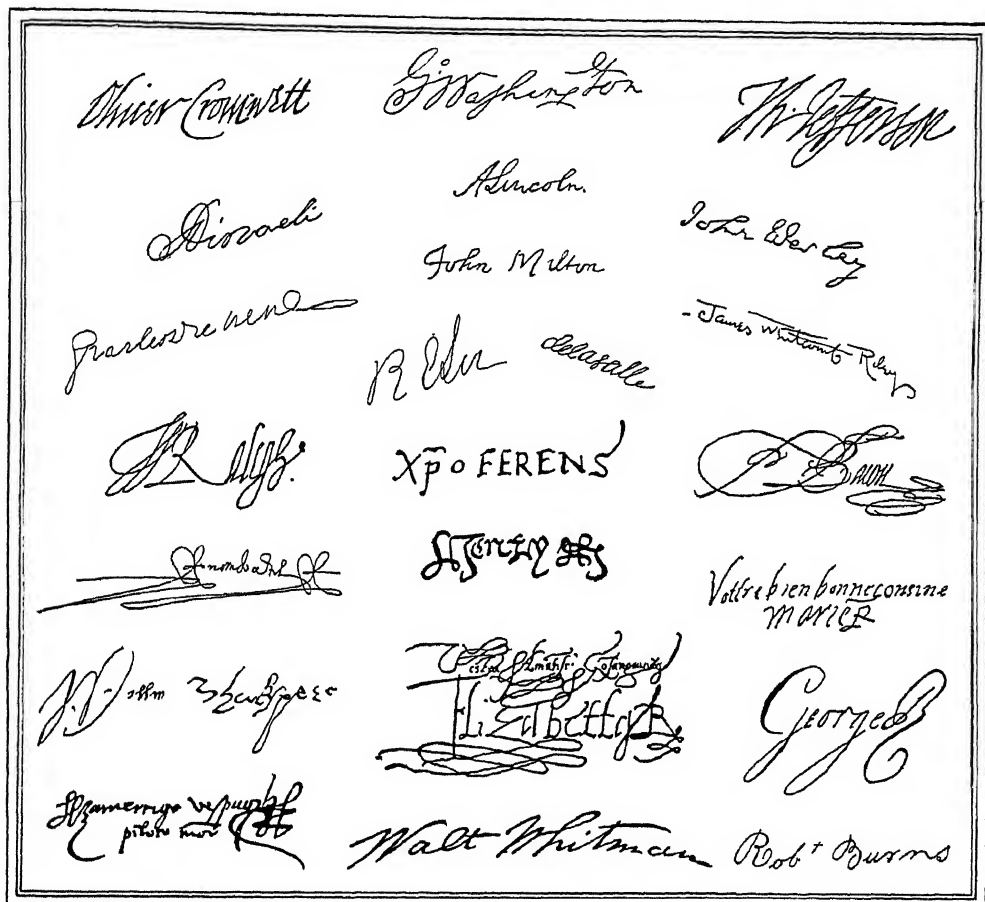 Oliver Cromwell
G:Washington
Th:Jefferson
ALincoln.
Disraeli
John Wesley
John Milton
R E Lee
delasalle
James Whitcomb Riley
W Ralegh.
Xp̄o FERENS
Bacon
Vottre bien bonne cousine
MARIE R
Shakspere
Elizabeth R
George R
amerrigo vespucci
piloto mor
Walt Whitman
Robt Burns